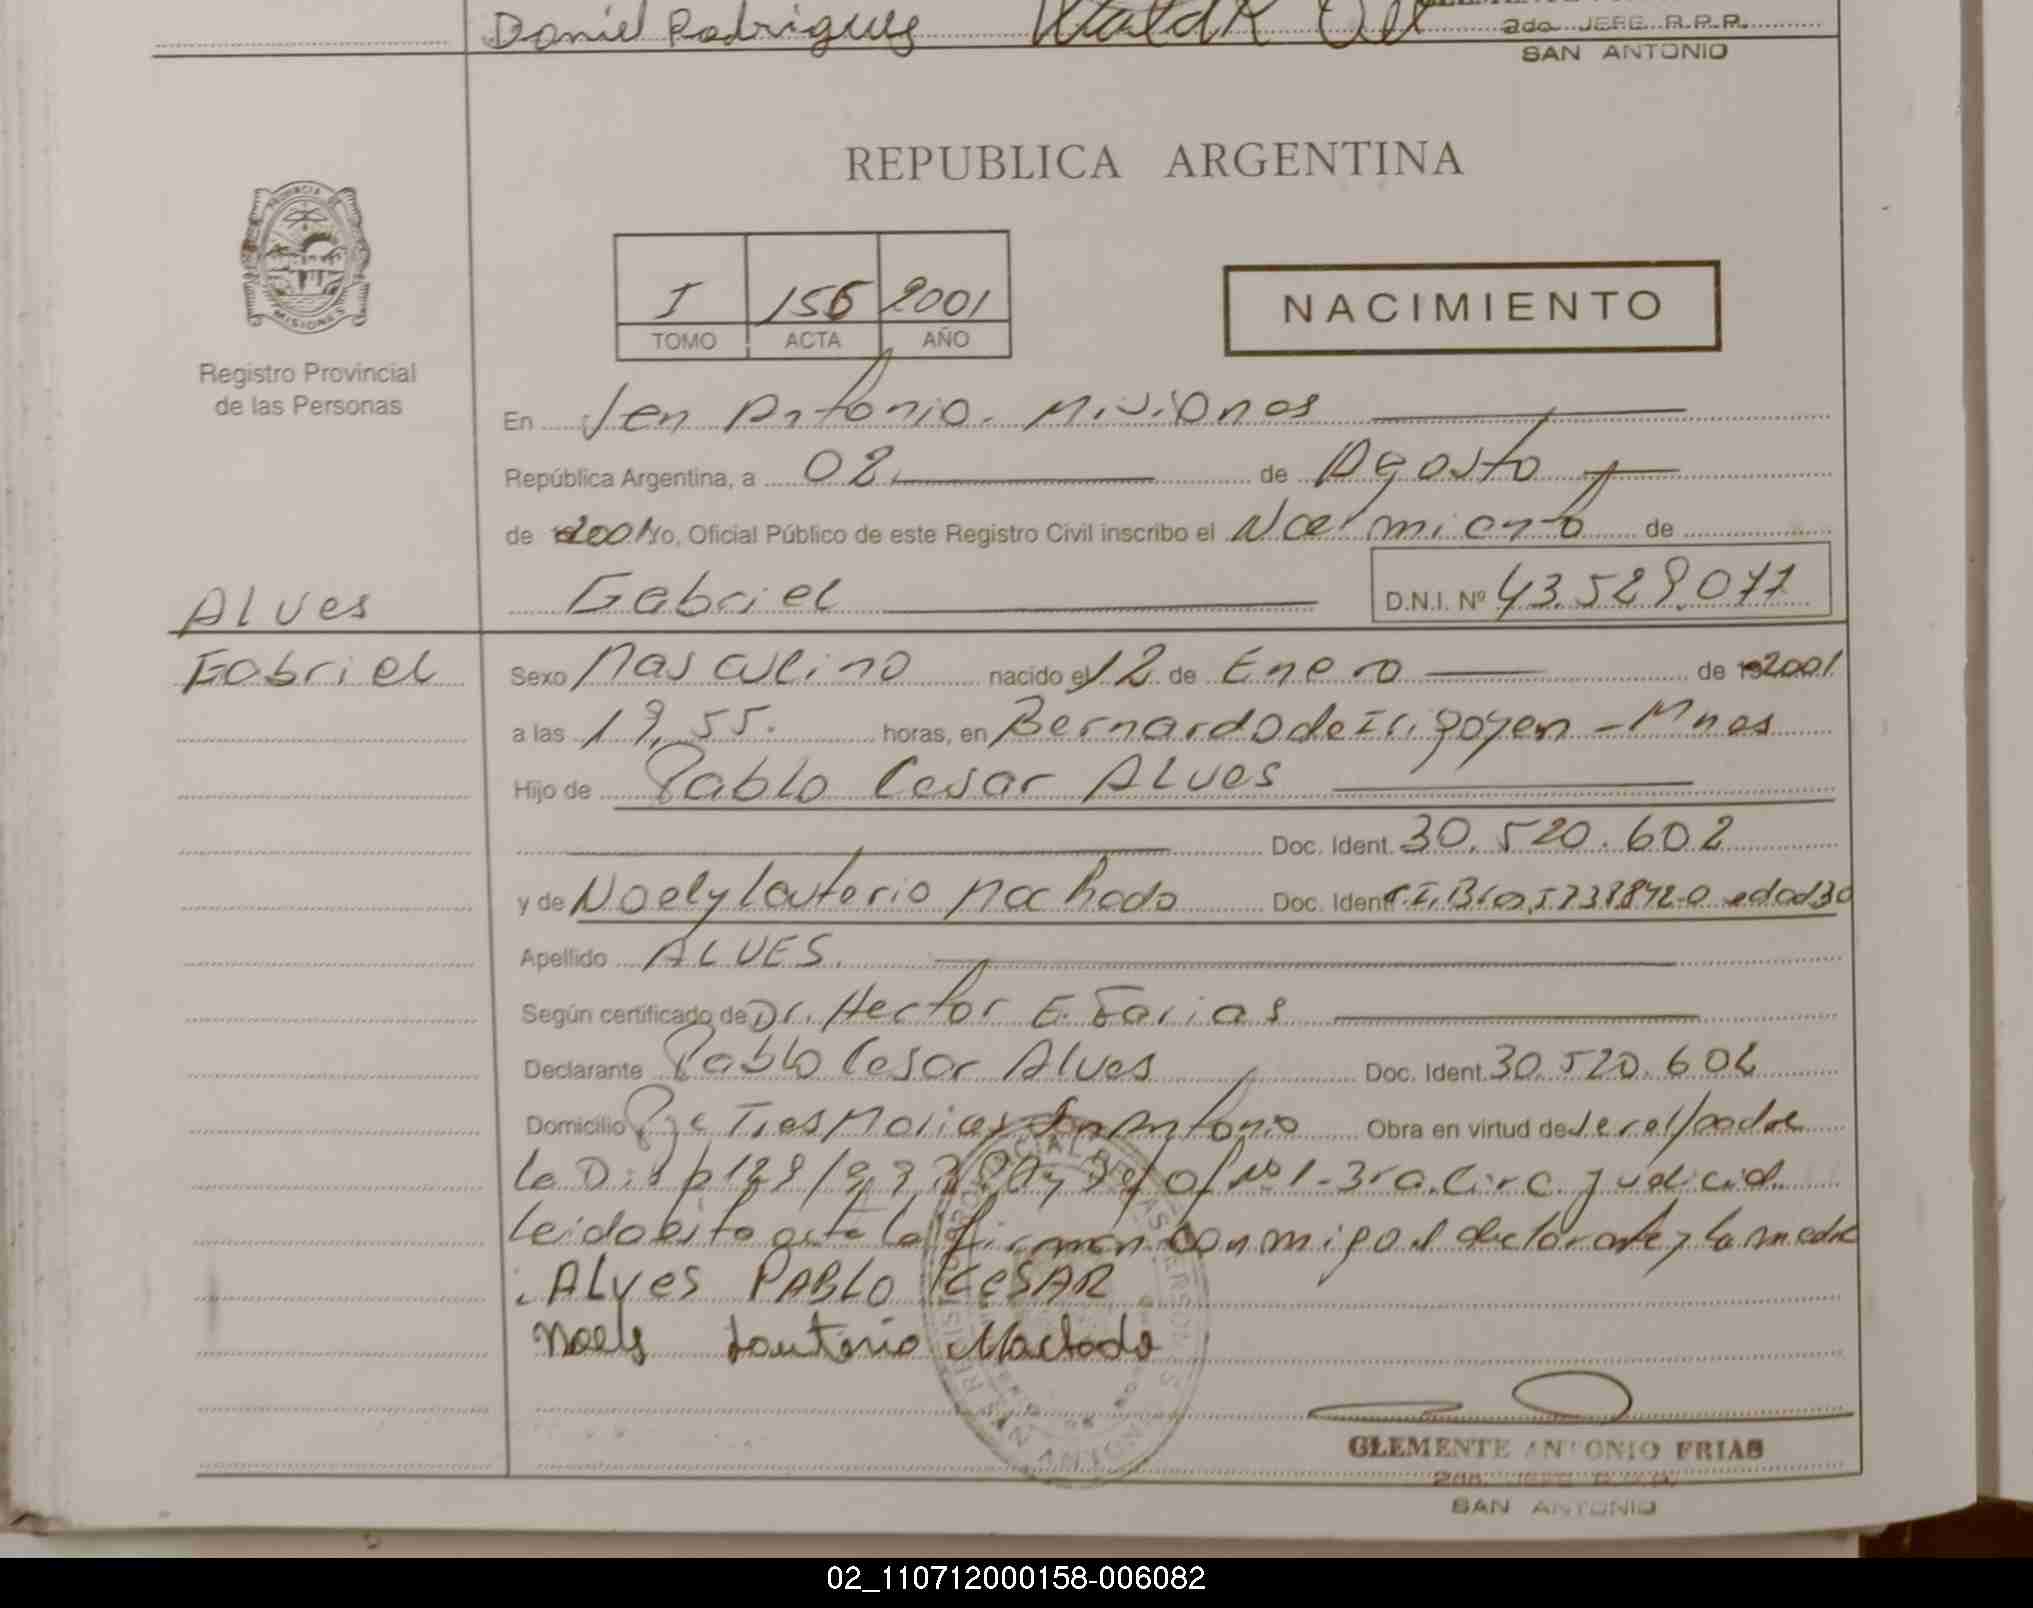 Daniel Rodriguez
2do. JEFE R.P.P.
SAN ANTONIO
REPUBLICA ARGENTINA
PROVINCIA DE
MISIONES
Registro Provincial
de las Personas
I 156 2001
TOMO ACTA AÑO
NACIMIENTO
En San Antonio. Misiones
República Argentina, a 02 de Agosto
de 2001 Yo, Oficial Público de este Registro Civil inscribo el Nacimiento de
Alves
Gabriel D.N.I. Nº 43.529.077
Gabriel
Sexo Masculino nacido el 12 de Enero de 2001
a las 19,55. horas, en Bernardo de Irigoyen - Mnes
Hijo de Pablo Cesar Alves
Doc. Ident. 30.520.602
y de Noely Lauterio Machado Doc. Ident. C.I. Bra, 5738842-0 edad 30
Apellido ALVES.
Según certificado de Dr. Hector E. Farias
Declarante Pablo Cesar Alves Doc. Ident. 30.520.602
Domicilio Pje Tres Marias San Antonio Obra en virtud de ser el padre
la Disp of Nº 1 - 3ra. Circ. Judicial.
Leido esta acta la firman conmigo el declarante y la madre
ALVES PABLO CESAR
Noely Lauterio Machado
CLEMENTE ANTONIO FRIAS
2do. JEFE R.P.P.
SAN ANTONIO
02_110712000158-006082